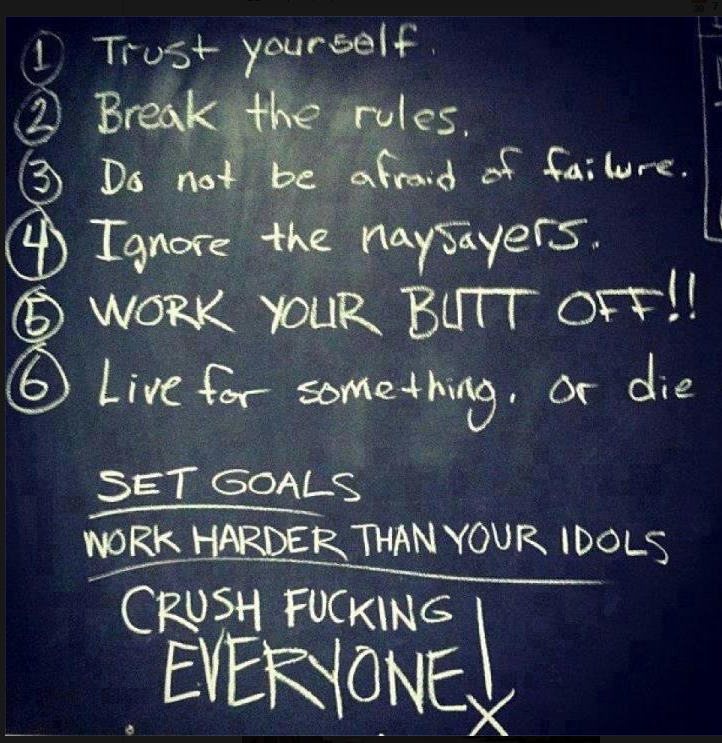 1 Trust yourself.
2 Break the rules.
3 Do not be afraid of failure.
4 Ignore the naysayers.
5 WORK YOUR BUTT OFF!!
6 Live for something, or die
SET GOALS
WORK HARDER THAN YOUR IDOLS
CRUSH FUCKING
EVERYONE!